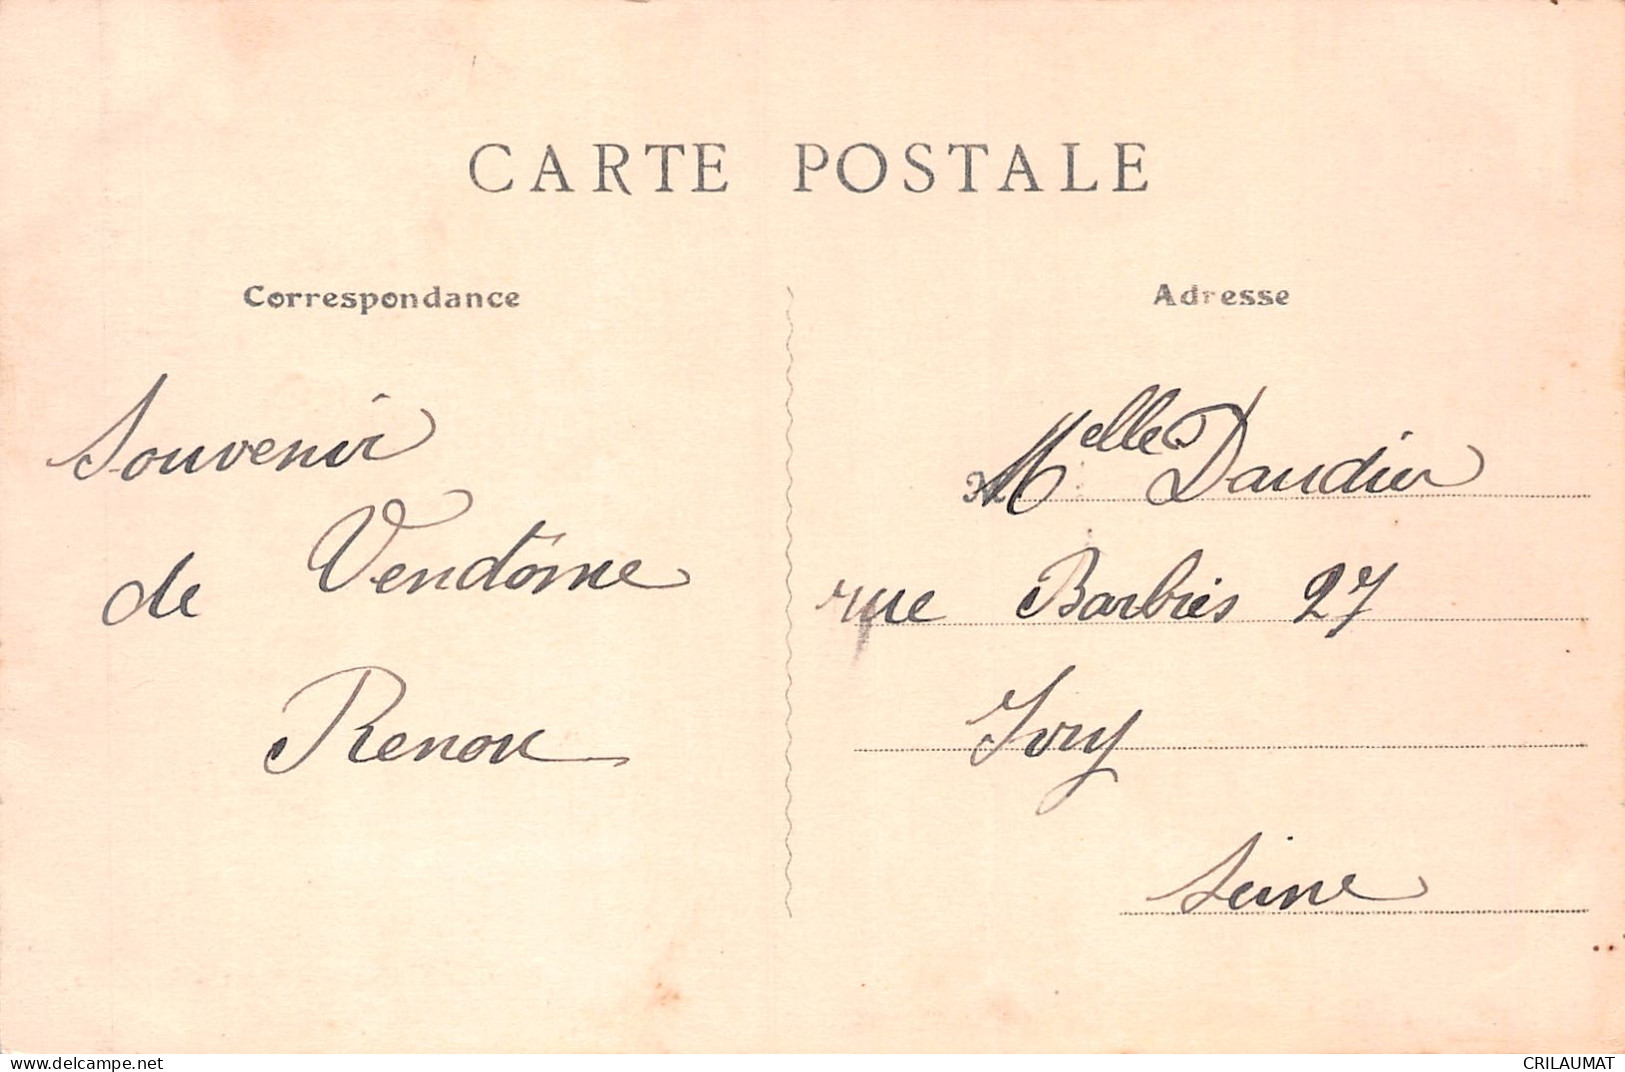 CARTE POSTALE
Correspondance
Adresse
Souvenir
de Vendôme
Renou
M
Melle Daudier
rue Barbiès 27
Ivry
Seine
https://www.delcampe.net
CRILAUMAT